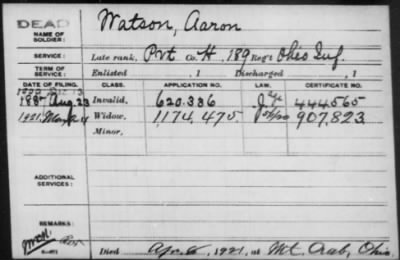 DEAD
Watson, Aaron
NAME OF SOLDIER:
SERVICE: Late rank, Pvt Co. H, 189 Reg't Ohio Inf.
TERM OF SERVICE: Enlisted , 1 Discharged , 1
DATE OF FILING. CLASS. APPLICATION NO. LAW. CERTIFICATE NO.
Aug. 23 Invalid, 620.386 444565
1921, Widow, 1174,475 907,823
Minor,
ADDITIONAL SERVICES:
REMARKS:
Died 1921, at Mt. Orab, Ohio.